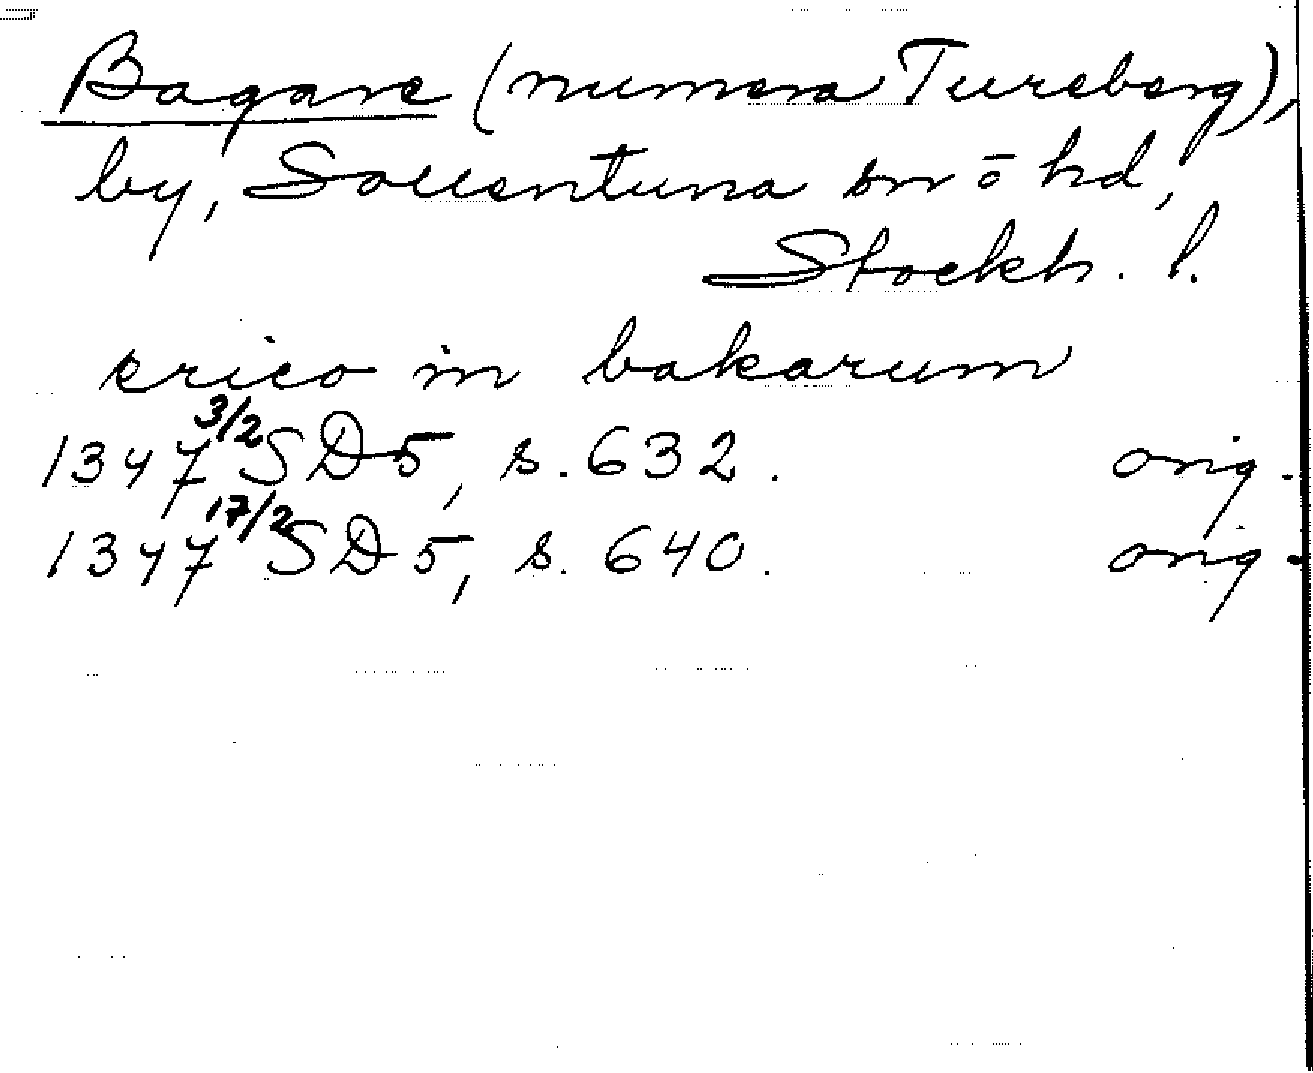 Bagare (numera Tureberg),
by, Sollentuna sn o hd,
Stockh. l.
erico in bakarum
1347 3/2 SD 5, s. 632. orig.
1347 17/2 SD 5, s. 640. orig.